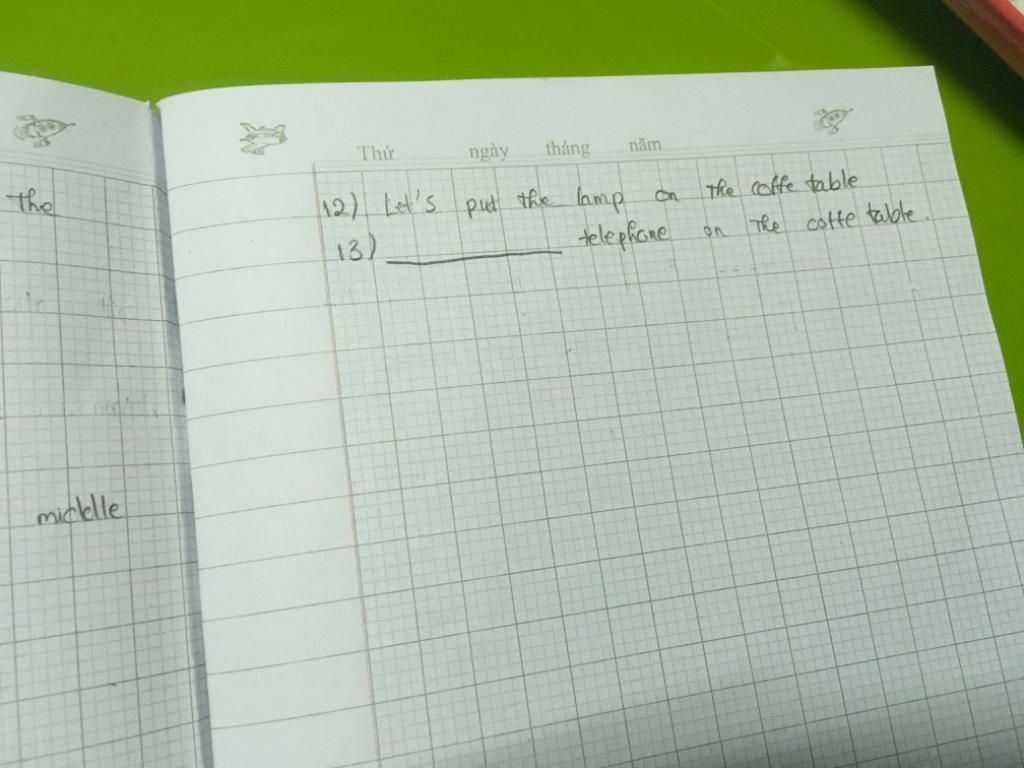 the
middle
Thứ ngày tháng năm
12) Let's put the lamp on the coffe table
13) ____________ telephone on the coffe table.